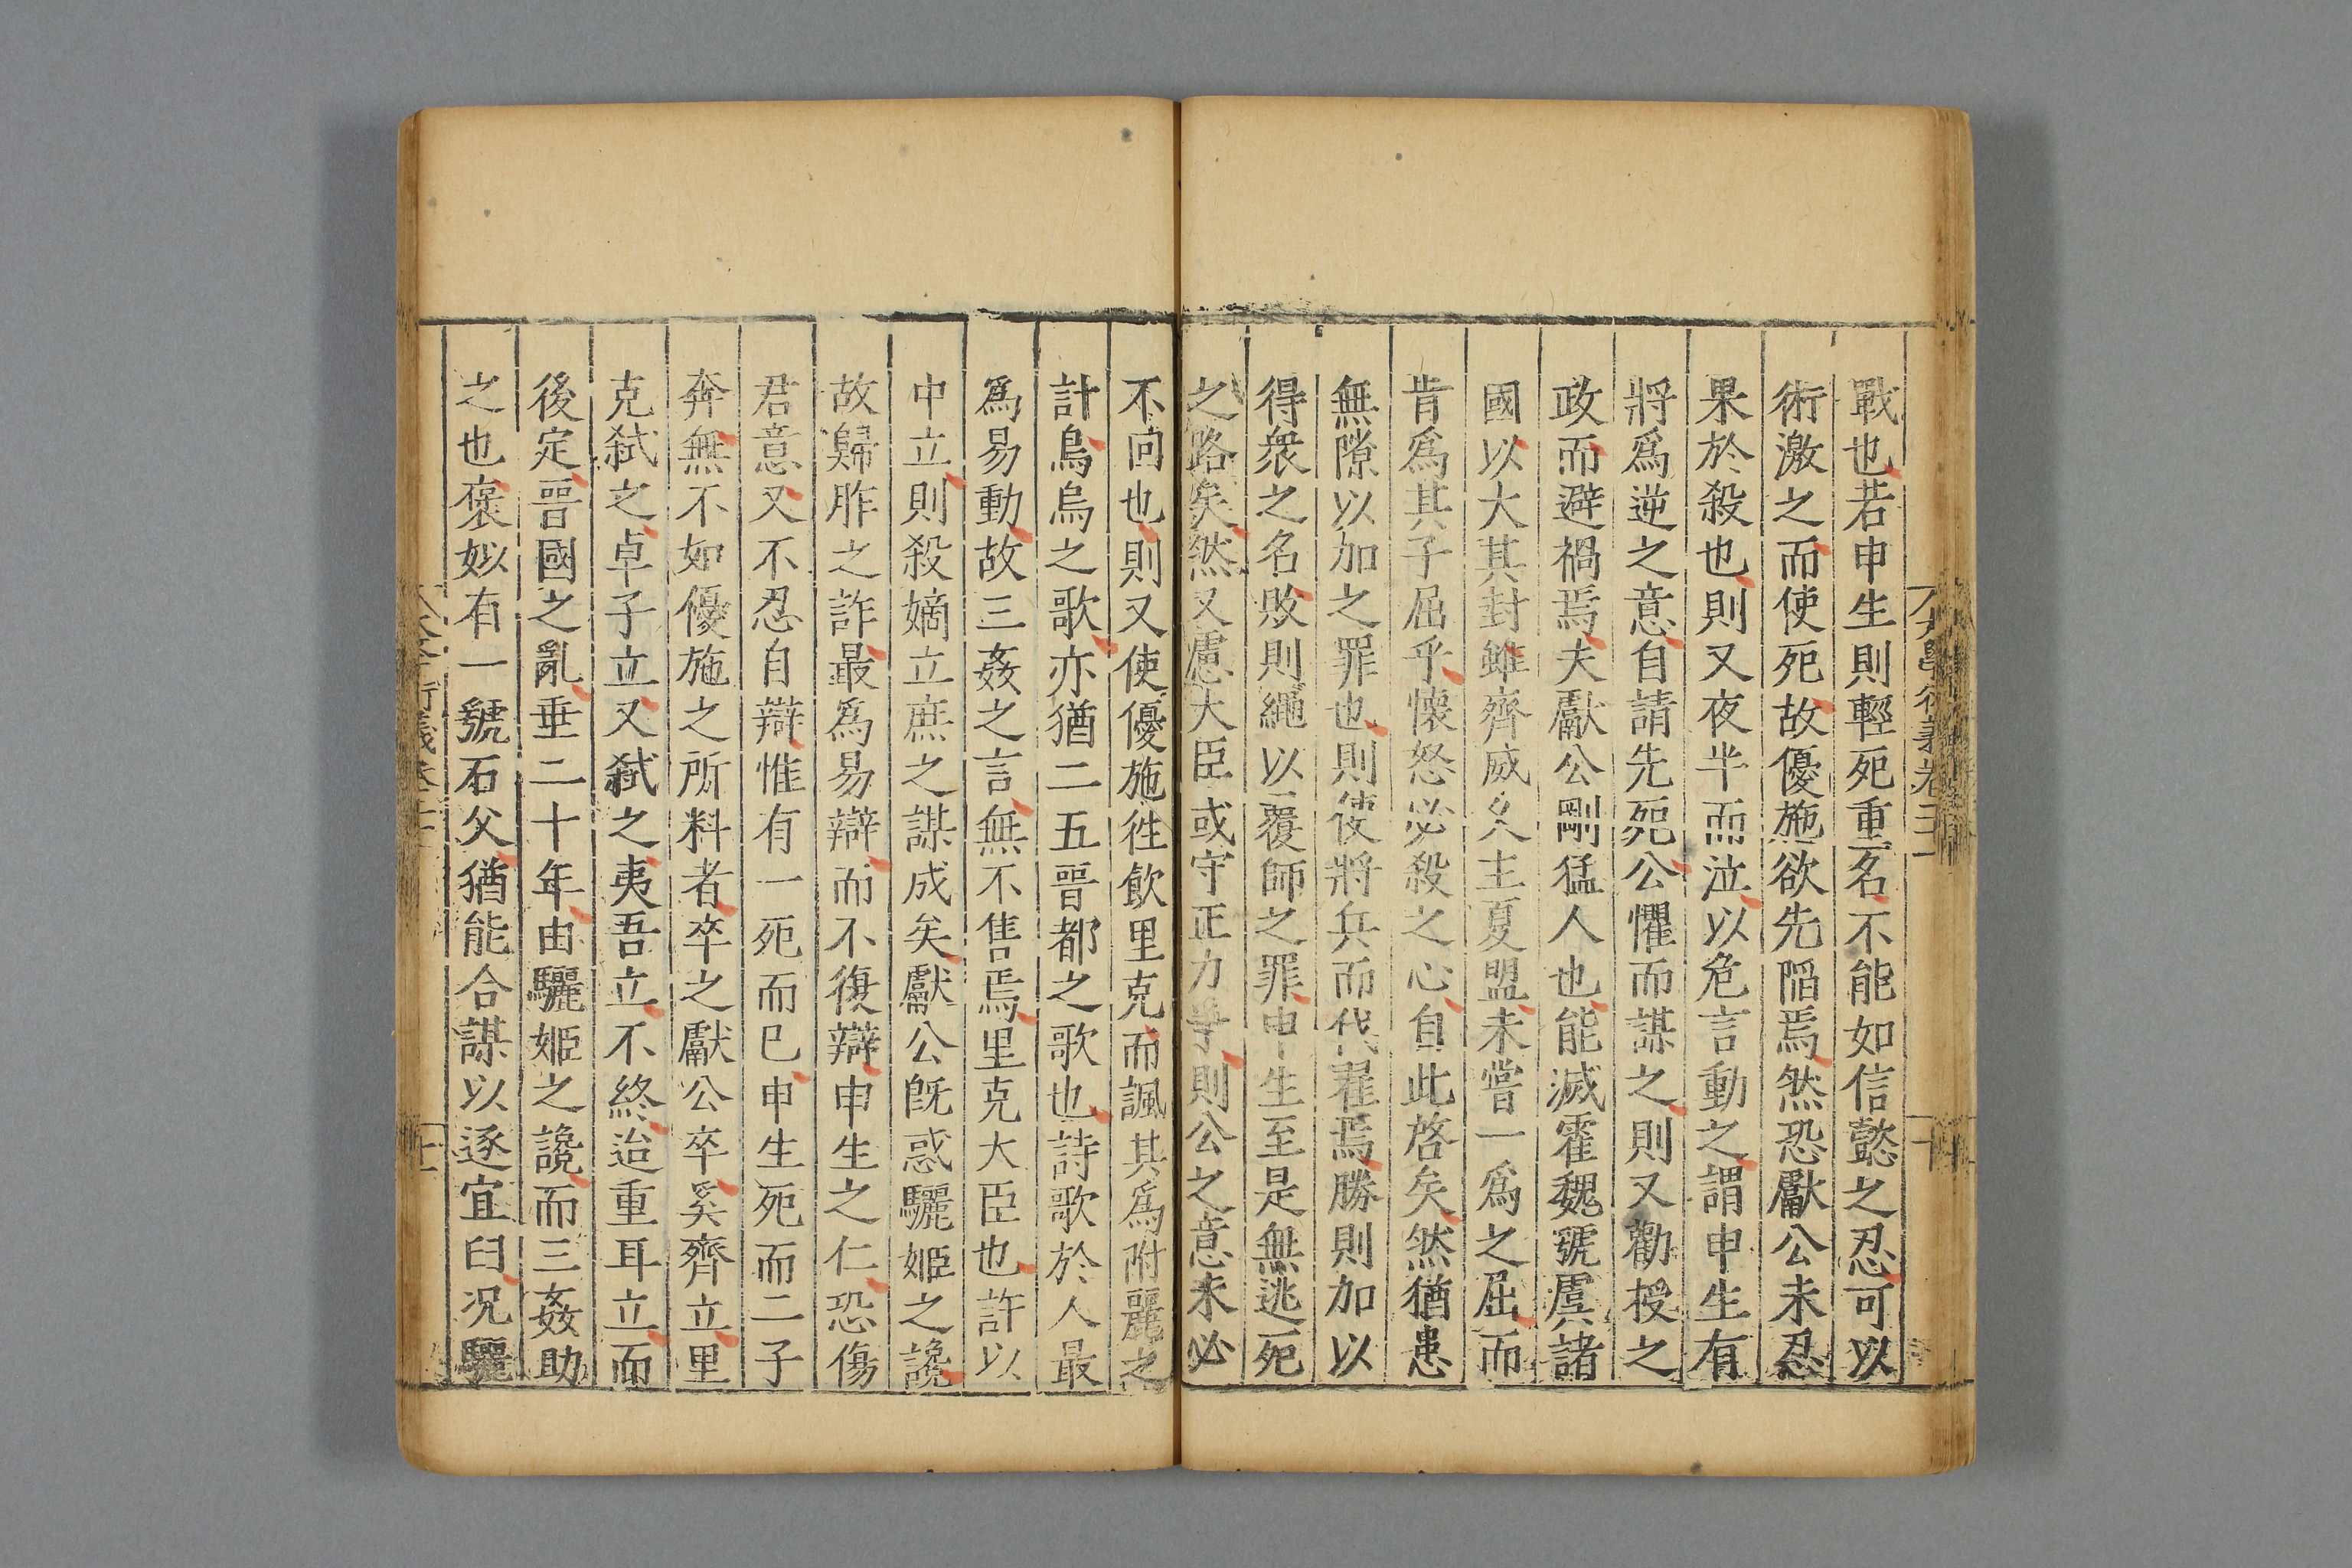 戰也若申生則輕死重名不能如信懿之忍可以
術激之而使死故優施欲先陷焉然恐獻公未忍
果於殺也則又夜半而泣以危言動之謂申生有
將爲逆之意自請先死公懼而謀之則又勸授之
政而避禍焉夫獻公剛猛人也能滅霍魏虢虞諸
國以大其封雖齊威久主夏盟未嘗一爲之屈而
肯爲其子屈乎懷怒必殺之心自此啓矣然猶患
無隙以加之罪也則使將兵而伐翟焉勝則加以
得衆之名敗則繩以覆師之罪申生至是無逃死
之路矣然又慮大臣或守正力爭則公之意未必
不回也則又使優施徃飲里克而諷其爲附麗之
計烏烏之歌亦猶二五晉都之歌也詩歌於人最
爲易動故三姦之言無不售焉里克大臣也許以
中立則殺嫡立庶之謀成矣獻公旣惑驪姬之讒
故歸胙之詐最爲易辯而不復辯申生之仁恐傷
君意又不忍自辯惟有一死而已申生死而二子
奔無不如優施之所料者卒之獻公卒奚齊立里
克弑之卓子立又弑之夷吾立不終迨重耳立而
後定晉國之亂垂二十年由驪姬之讒而三姦助
之也褒姒有一虢石父猶能合謀以逐宜臼况驪